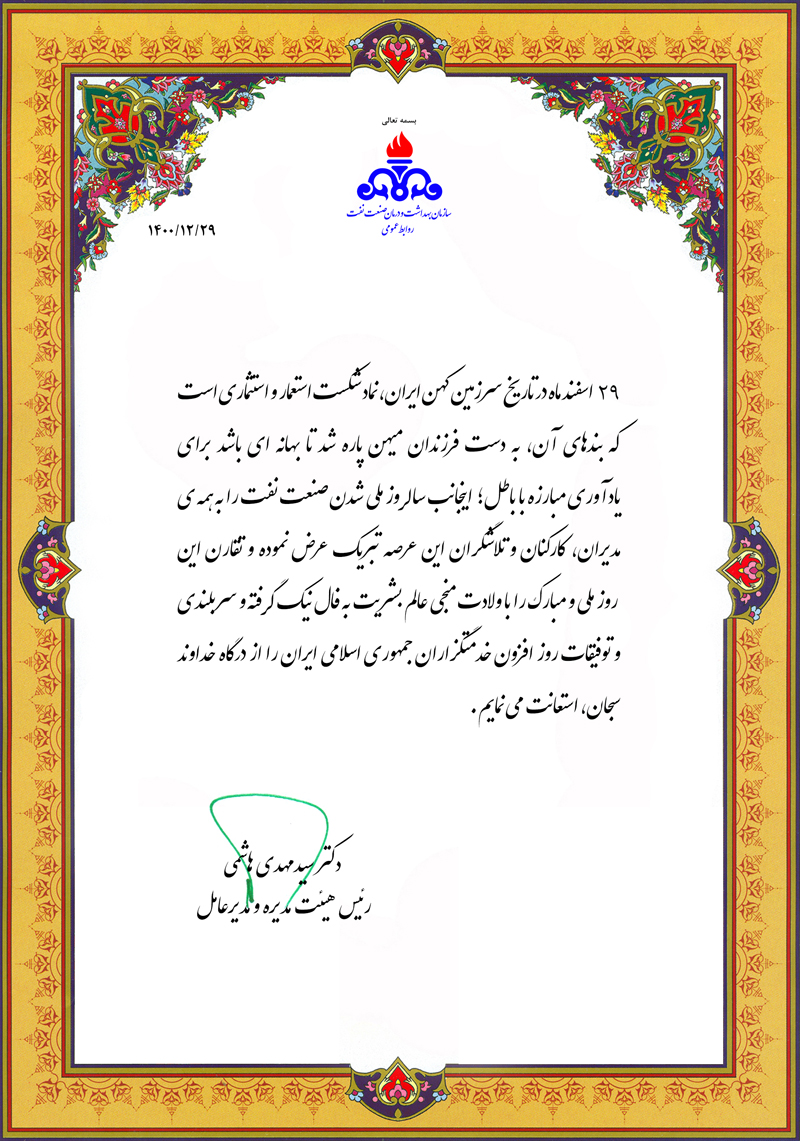 بسمه تعالی
سازمان بهداشت و درمان صنعت نفت
روابط عمومی
۱۴۰۰/۱۲/۲۹
۲۹ اسفند ماه در تاریخ سرزمین کهن ایران، نماد شکست استعمار و استثماری است
که بندهای آن، به دست فرزندان میهن پاره شد تا بهانه ای باشد برای
یادآوری مبارزه با باطل؛ اینجانب سالروز ملی شدن صنعت نفت را به همه ی
مدیران، کارکنان و تلاشگران این عرصه تبریک عرض نموده و تقارن این
روز ملی و مبارک را با ولادت منجی عالم بشریت به فال نیک گرفته و سربلندی
و توفیقات روز افزون خدمتگزاران جمهوری اسلامی ایران را از درگاه خداوند
سبحان، استعانت می نمایم .
دکتر سید مهدی هاشمی
رئیس هیئت مدیره و مدیرعامل